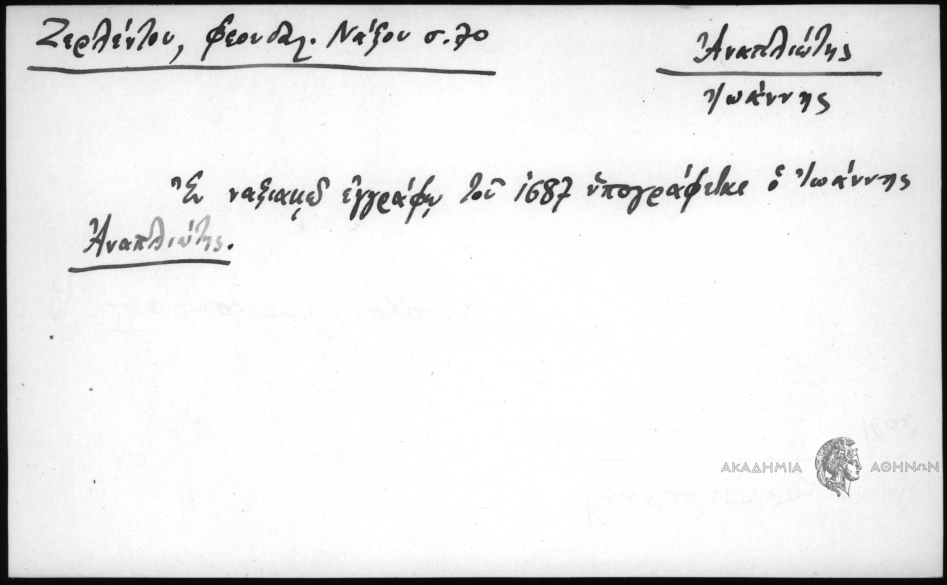 Ζερλέντου, Φεουδαλ. Νάξου σ. 70
Ἀναπλιώτης
Ἰωάννης
Ἐν ναξιακῷ ἐγγράφῳ τοῦ 1687 ὑπογράφεται ὁ Ἰωάννης
Ἀναπλιώτης.
ΑΚΑΔΗΜΙΑ ΑΘΗΝΩΝ